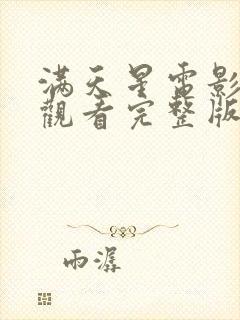 滿天星電影
觀看完整版
雨潺